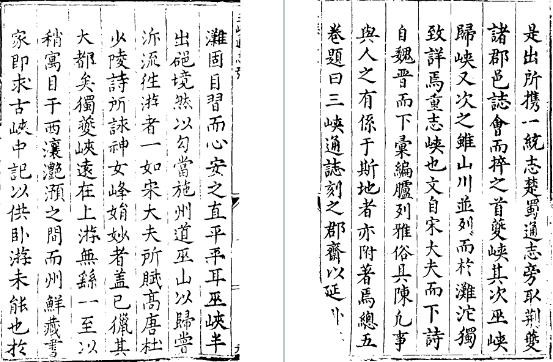 灘固目習而心安之直平平耳巫峽半
出絕境然以勾當施州道巫山以歸嘗
泝流徃游者一如宋大夫所賦髙唐杜
少陵詩所詠神女峰娟妙者蓋已獵其
大都矣獨夔峽遠在上游無繇一至以
稍寓目于西瀼灔澦之間而州鮮藏書
家即求古峽中記以供卧游未能也於
是出所攜一統志楚蜀通志旁取荆夔
諸郡邑誌會而捽之首夔峽其次巫峽
歸峽又次之雖山川並列而於灘沱獨
致詳焉重志峽也文自宋大夫而下詩
自魏晉而下彙編臚列雅俗具陳凢事
與人之有係于斯地者亦附著焉總五
卷題曰三峽通誌刻之郡齋以延